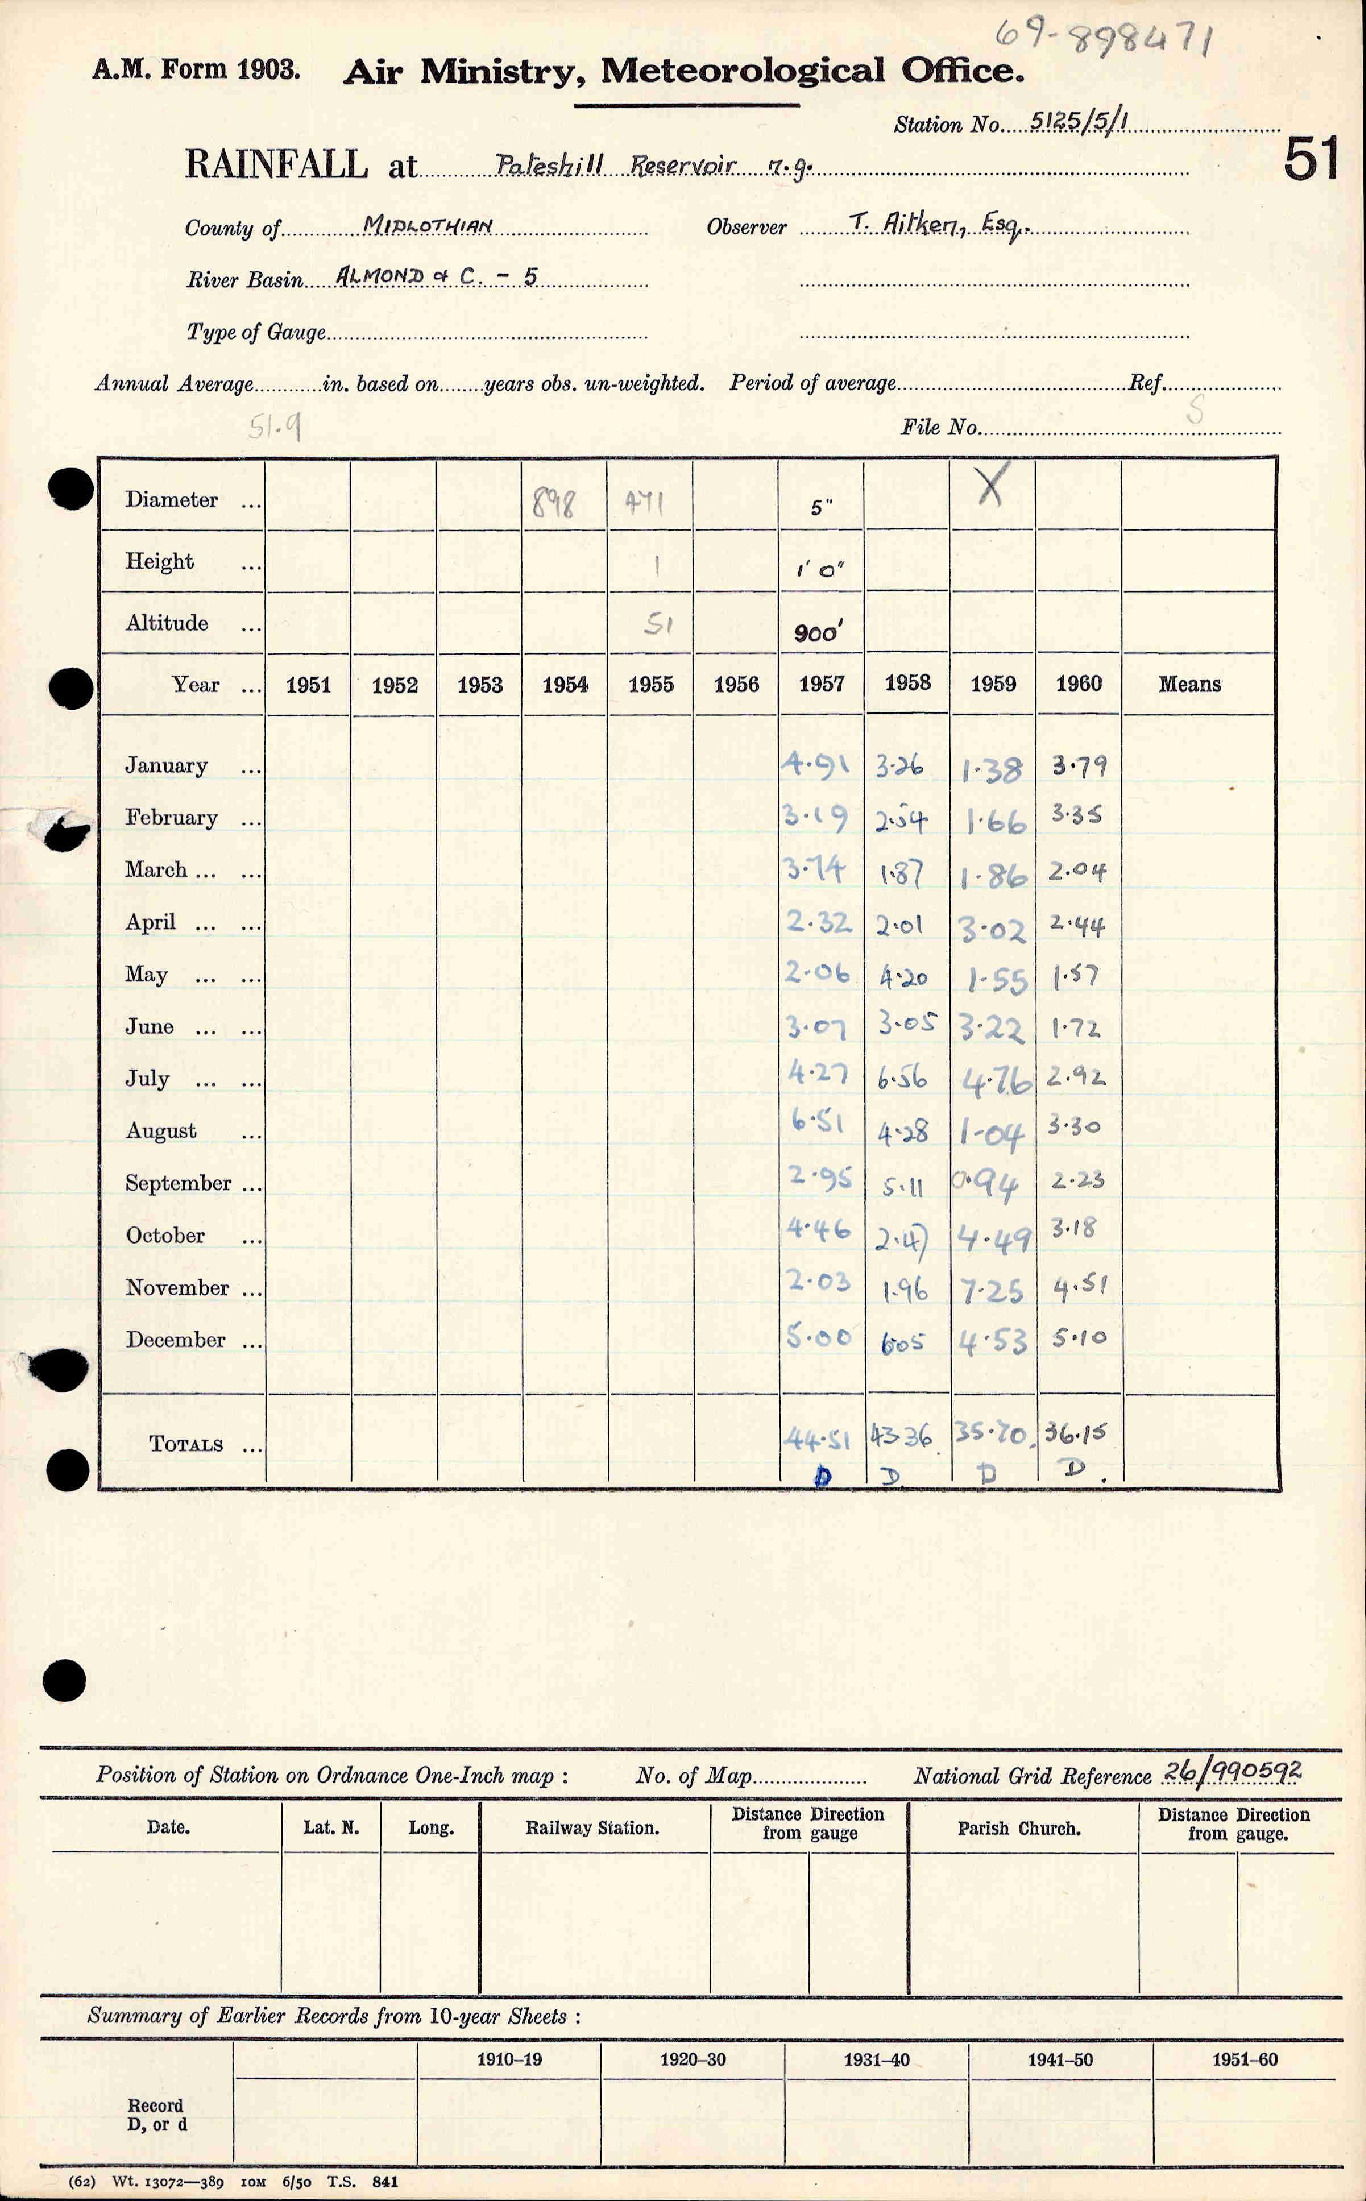 69-898471
A.M. Form 1903. Air Ministry, Meteorological Office.
Station No. 5125/5/1
51
RAINFALL at Pateshill Reservoir n.g.
County of MIDLOTHIAN Observer T. Aitken, Esq.
River Basin ALMOND & C. - 5
Type of Gauge
Annual Average in. based on years obs. un-weighted. Period of average Ref.
51.9 File No. S
Diameter ... 898 471 5" X
Height ... 1 1' 0"
Altitude ... 51 900'
Year ... 1951 1952 1953 1954 1955 1956 1957 1958 1959 1960 Means
January ... 4.91 3.26 1.38 3.79
February ... 3.19 2.54 1.66 3.35
March ... ... 3.74 1.87 1.86 2.04
April ... ... 2.32 2.01 3.02 2.44
May ... ... 2.06 4.20 1.55 1.57
June ... ... 3.07 3.05 3.22 1.72
July ... ... 4.27 6.56 4.76 2.92
August ... 6.51 4.28 1.04 3.30
September ... 2.95 5.11 0.94 2.23
October ... 4.46 2.47 4.49 3.18
November ... 2.03 1.96 7.25 4.51
December ... 5.00 6.05 4.53 5.10
TOTALS ... 44.51 43.36 35.70 36.15
D D D D
Position of Station on Ordnance One-Inch map : No. of Map National Grid Reference 26/990592
Date. Lat. N. Long. Railway Station. Distance Direction from gauge Parish Church. Distance Direction from gauge.
Summary of Earlier Records from 10-year Sheets :
1910–19 1920–30 1931–40 1941–50 1951–60
Record
D, or d
(62) Wt. 13072—389 10M 6/50 T.S. 841